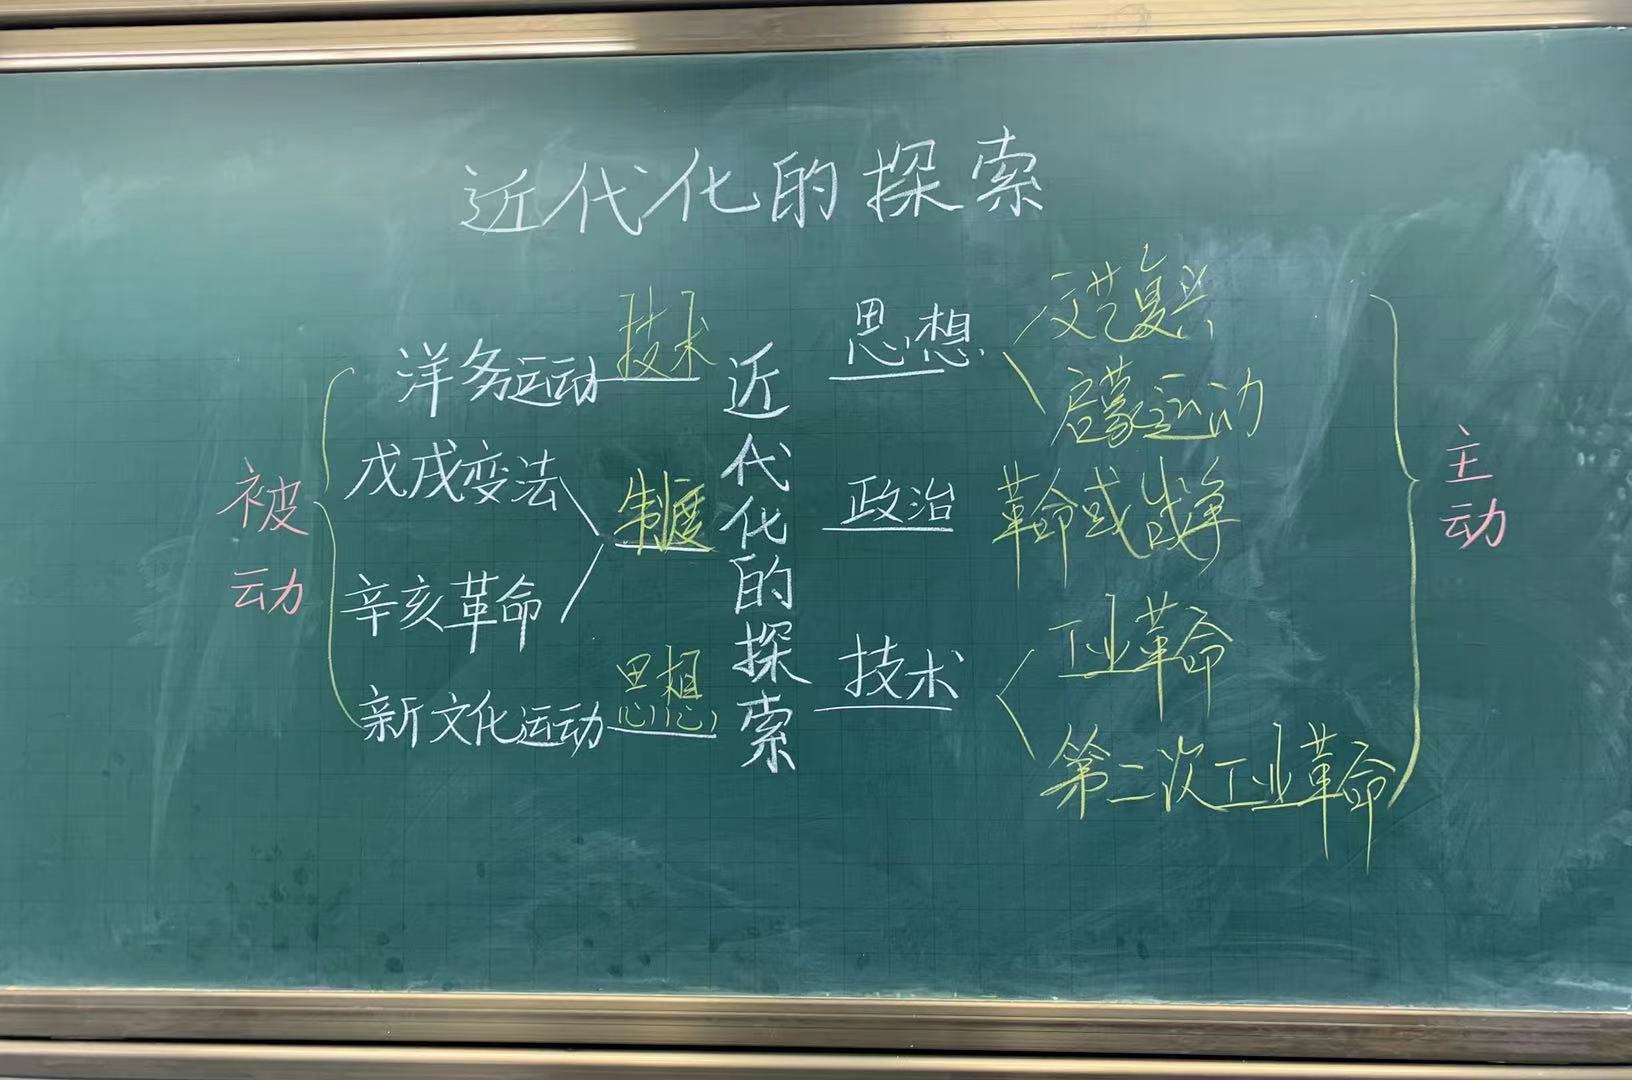 近代化的探索
被动
洋务运动 技术
戊戌变法
制度
辛亥革命
新文化运动 思想
近代化的探索
思想
文艺复兴
启蒙运动
政治 革命或战争
技术
工业革命
第二次工业革命
主动